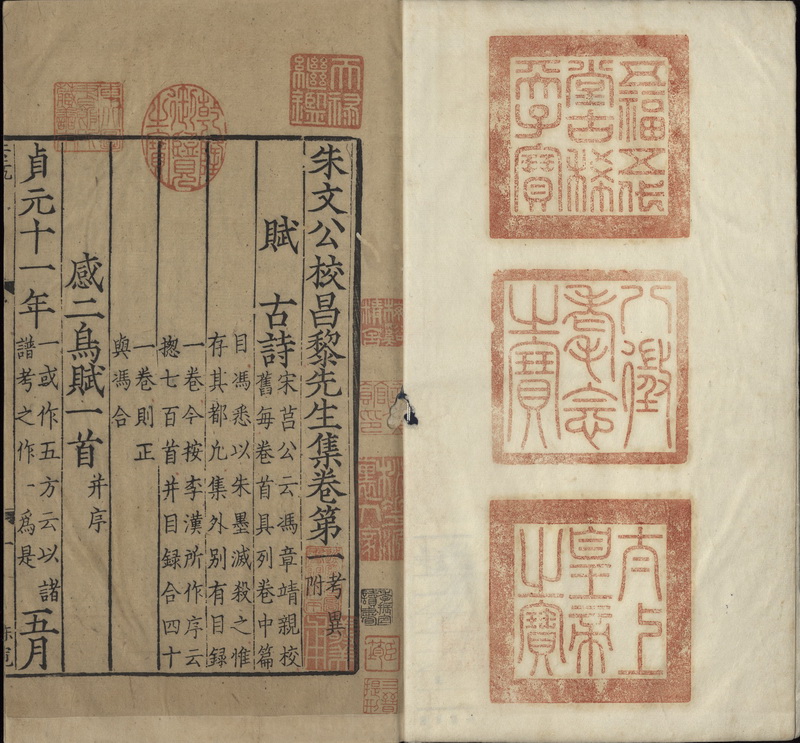 五福五代
堂古稀
天子寶
八徵
耄念
之寶
太上
皇帝
之寶
天祿
繼鑑
乾隆
御覽
之寶
朱文公校昌黎先生集卷第一 考異附
賦 古詩 宋莒公云馮章靖親校
舊每卷首具列卷中篇
目馮悉以朱墨滅殺之惟
存其都凡集外别有目録
一卷今按李漢所作序云
揔七百首并目録合四十
一卷則正
與馮合
感二鳥賦一首 并序
貞元十一年 一或作五方云以諸
譜考之作一爲是 五月